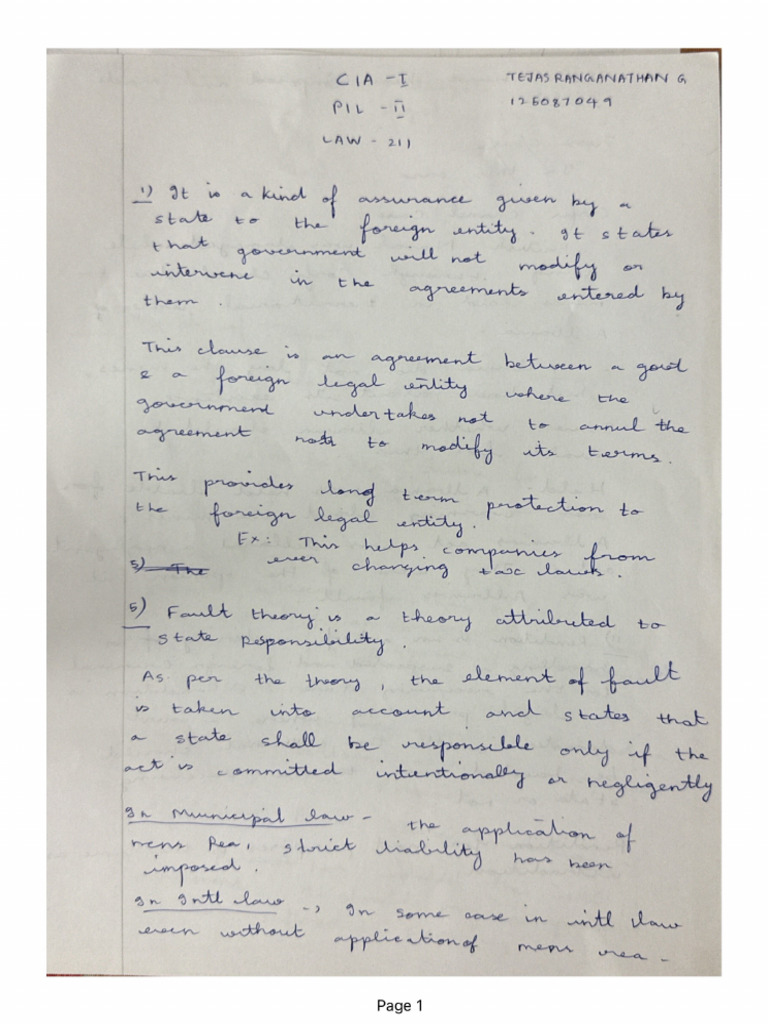 CIA - I
TEJAS RANGANATHAN G
PIL - II
125087049
LAW - 211
1) It is a kind of assurance given by a
state to the foreign entity. It states
that government will not modify or
intervene in the agreements entered by
them.
This clause is an agreement between a govt
& a foreign legal entity where the
government undertakes not to annul the
agreement nor to modify its terms.
This provides long term protection to
the foreign legal entity.
Ex: This helps companies from
5) The ever changing tax laws.
5) Fault theory is a theory attributed to
state responsibility.
As per the theory, the element of fault
is taken into account and states that
a state shall be responsible only if the
act is committed intentionally or negligently
In Municipal law - the application of
mens Rea, strict liability has been
imposed.
In Intl law -, In some case in intl law
even without application of mens rea -
Page 1